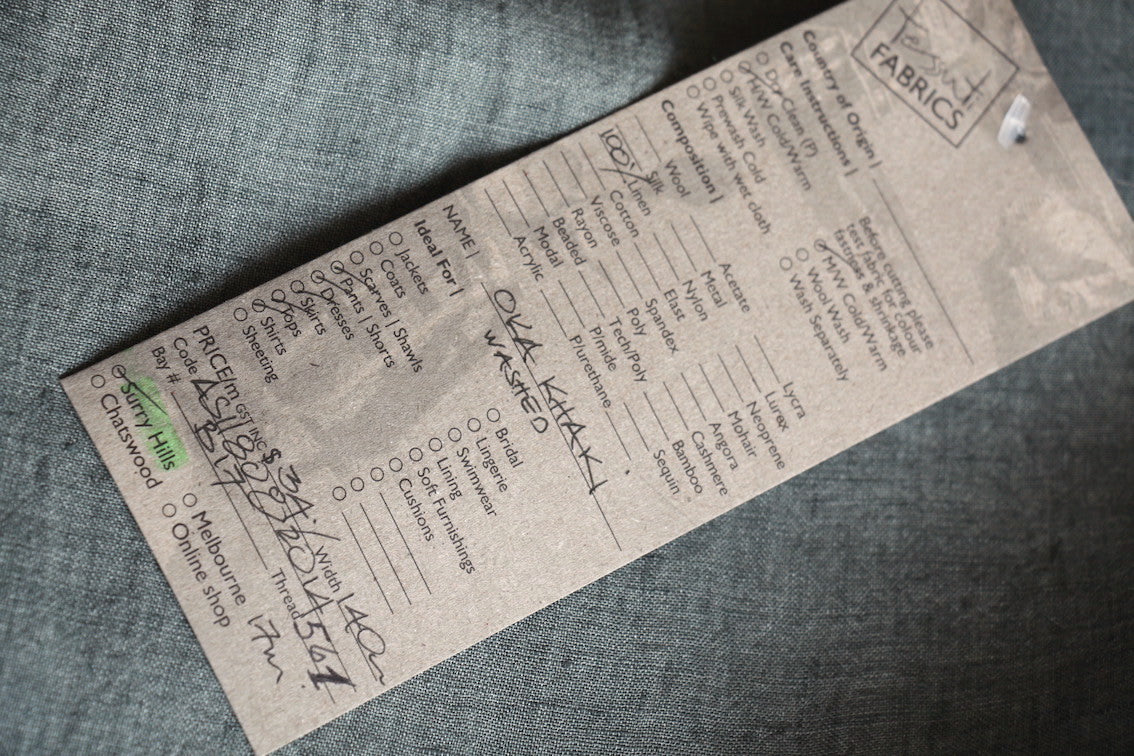 Tessuti
FABRICS
Country of Origin |
Care Instructions |
Dry Clean (P)
H/W Cold/Warm
Silk Wash
Prewash Cold
Wipe with wet cloth
Before cutting please
test fabric for colour
fastness & shrinkage
M/W Cold/Warm
Wool Wash
Wash Separately
Composition |
Wool
Silk
100% Linen
Cotton
Viscose
Rayon
Beaded
Modal
Acrylic
Acetate
Metal
Nylon
Elast
Spandex
Poly
Tech/Poly
P/mide
P/urethane
Lycra
Lurax
Neoprene
Mohair
Angora
Cashmere
Bamboo
Sequin
NAME | OKA KHAKI
WASHED
Ideal For |
Jackets
Coats
Scarves | Shawls
Pants | Shorts
Dresses
Skirts
Tops
Shirts
Sheeting
Bridal
Lingerie
Swimwear
Lining
Soft Furnishings
Cushions
PRICE/m GST INC $34.- Width 140cm
Code
Bay # B17 Thread
Surry Hills
Chatswood
Melbourne
Online shop